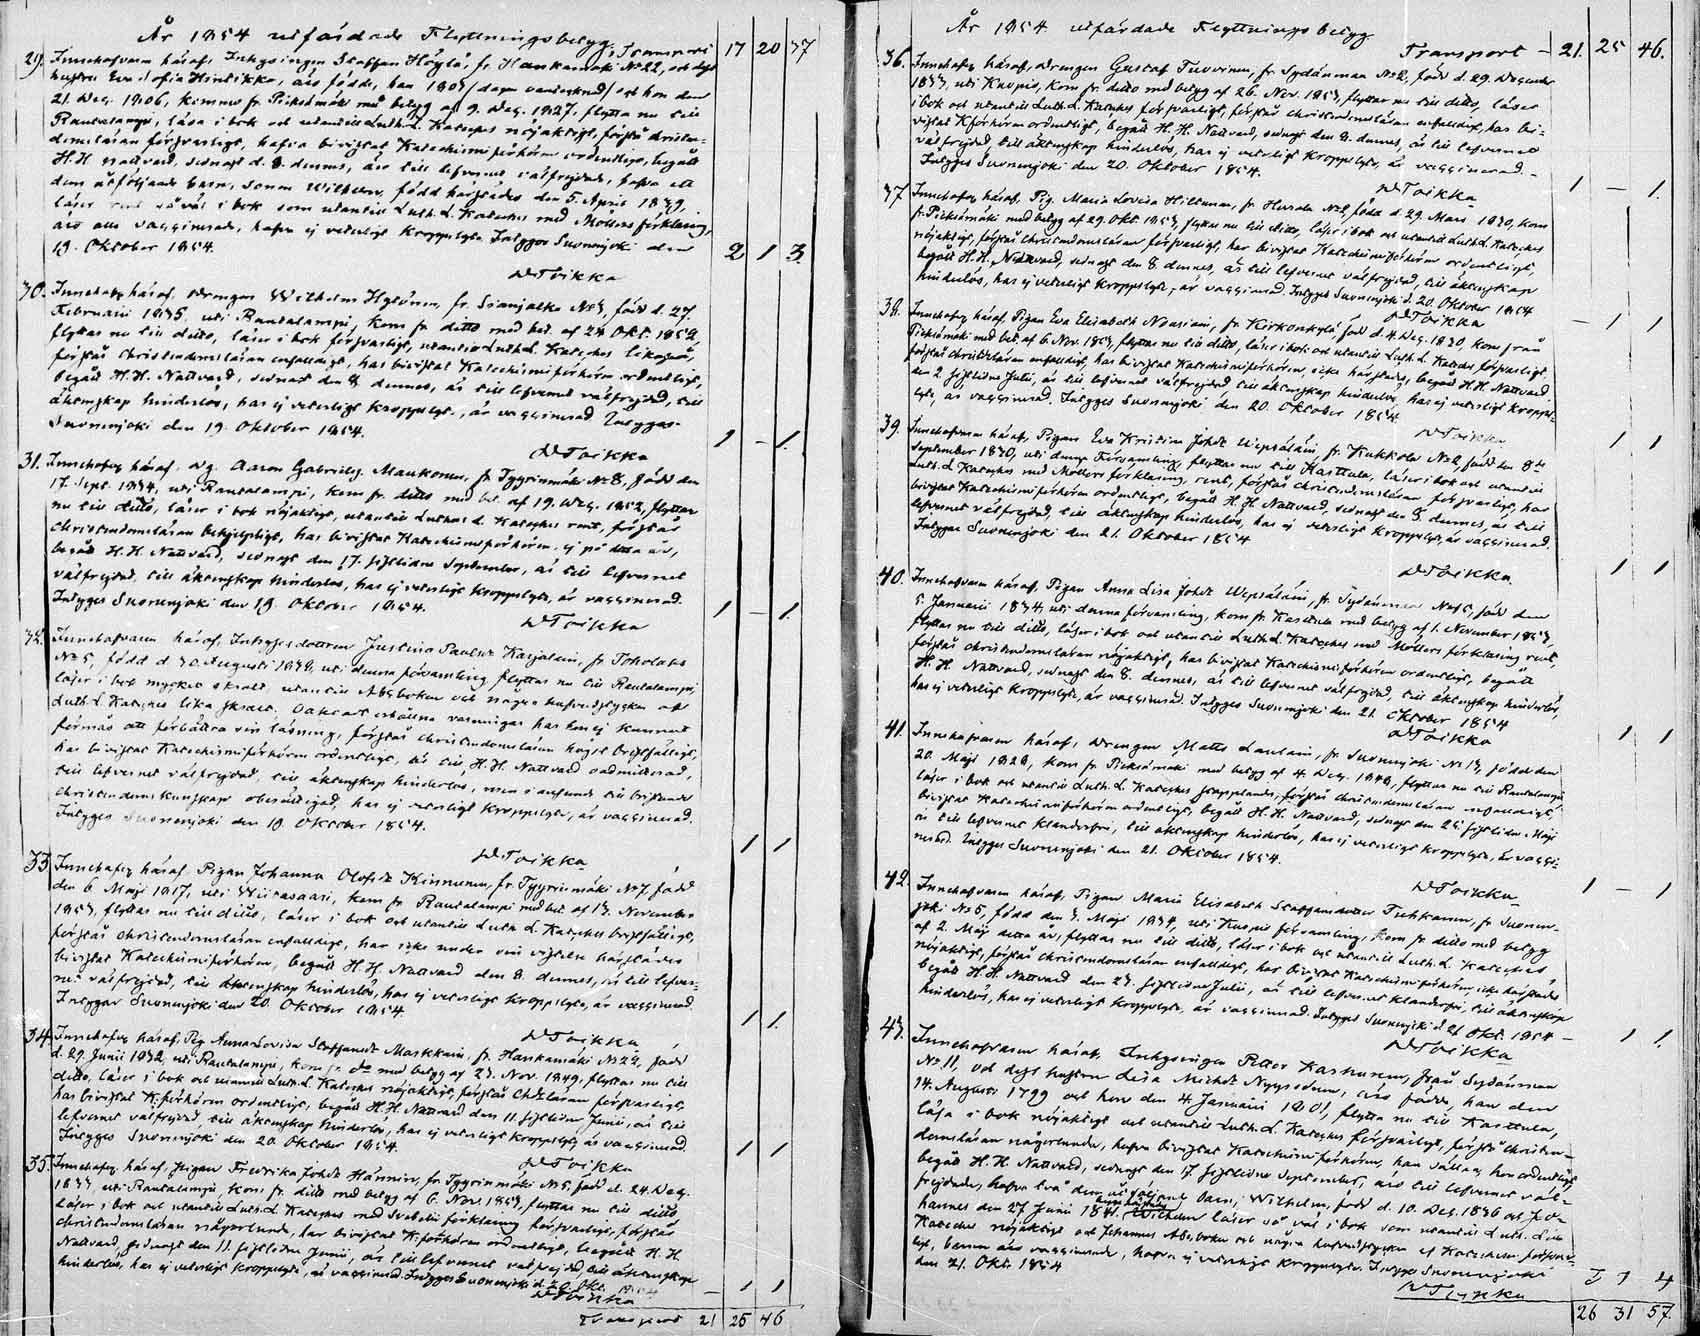 År 1854 utfärdade Flyttningsbetyg. Transport 17 20 37
29. Innehafvaren häraf, Inhysingen Staffan Höylä, fr. Hankamäki No 22, och dess
hustru Eva Sofia Hintikka, äro födde, han 1803 / dagen oantecknad / och hon den
21. Dec. 1806, komne fr. Pieksämäki med betyg af 9. Dec. 1827, flytta nu till
Rautalampi, läsa i bok och utantill Luth. L. Kateches nöjaktigt, förstå christen-
domsläran försvarligt, hafva bivistat Katechismiförhören ordentligt, begått
H. H. Nattvard, sednast d. 8. dennes, äro till lefvernet välfrejdade, hafva ett
dem åtföljande barn, sonen Wilhelm, född härstädes den 5. April 1839,
läser rent så väl i bok som utantill Luth. L. Kateches med Möllers förklaring,
äro alla vaccinerade, hafva ej veterligt kroppslyte. Intygas Suonenjoki den
19. Oktober 1854. 2 1 3.
W Toikka
30. Innehafv. häraf, Drengen Wilhelm Hytönen, fr. Sianjalka No 3, född d. 27.
Februarii 1835, uti Rautalampi, kom fr. ditto med bet. af 24 Okt. 1852,
flyttar nu till ditto, läser i bok försvarligt, utantill Luth. L. Kateches likaså,
förstår Christendomsläran enfalldigt, har bivistat Katechismiförhören ordentligt,
begått H. H. Nattvard, sednast den 8 dennes, är till lefvernet välfrejdad, till
äktenskap hinderlös, har ej veterligt kroppslyte, är vaccinerad. Intygas
Suonenjoki den 19. Oktober 1854. 1 – 1.
W Toikka
31. Innehafv. häraf, Dg. Aaron Gabrielss. Maukonen, fr. Tyyrinmäki No 8, född den
17. Sept. 1834, uti Rautalampi, kom fr. ditto med bet. af 19. Dec. 1852, flyttar
nu till ditto, läser i bok nöjaktigt, utantill Luthers L. Kateches rent, förstår
Christendomsläran behjelpligt, har bivistat Katechismiförhören, ej på detta år,
begått H. H. Nattvard, sednast den 17. sistlidne September, är till lefvernet
välfrejdad, till äktenskap hinderlös, har ej veterligt kroppslyte, är vaccinerad.
Intygas Suonenjoki den 19. Oktober 1854. 1 – 1.
W Toikka
32. Innehafvaren häraf, Inhysesdottren Justina Paulsdr Karjalain, fr. Toholaks
No 5, född d. 30. Augusti 1838, uti denna församling flyttar nu till Rautalampi,
läser i bok mycket skralt, utantill Abcboken och några hufvudstycken af
Luth. L. Kateches lika skralt. Oaktadt erhållna varningar har hon ej kunnat
förmås att förbättra sin läsning, förstår Christendomsläran högst bristfälligt,
har bivistat Katechismiförhören ordentligt, är till H. H. Nattvard oadmitterad,
till lefvernet välfrejdad, till äktenskap hinderlös, men i anseende till bristande
Christendomskunskap oberättigad, har ej veterligt kroppslyte, är vaccinerad.
Intygas Suonenjoki den 19. Oktober 1854. 1 1
W Toikka
33 Innehafv. häraf, Pigan Johanna Olofsdr Kinnunen, fr. Tyyrinmäki No 7, född
den 6 Maji 1817, uti Wiitasaari, kom fr. Rautalampi med bet. af 13. November
1853, flyttar nu till ditto, läser i bok och utantill Luth. L. Kateches bristfälligt,
förstår Christendomsläran enfalldigt, har icke under sin vistelse härstädes
bivistat Katechismiförhören, begått H. H. Nattvard den 8. dennes, är till lefver-
net välfrejdad, till äktenskap hinderlös, har ej veterligt kroppslyte, är vaccinerad.
Intygar Suonenjoki den 20. Oktober 1854. 1 1.
W Toikka
34. Innehafv. häraf, Pig. Anna Lovisa Staffansdr Markkain, fr. Hankamäki No 22, född
d. 29. Junii 1832, uti Rautalampi, kom fr. do med betyg af 23. Nov. 1849, flyttar nu till
ditto, läser i bok och utantill Luth. L. Kateches nöjaktigt, förstår Chdsläran försvarligt,
har bivistat K. förhören ordentligt, begått H. H. Nattvard den 11. sistlidne Junii, är till
lefvernet välfrejdad, till äktenskap hinderlös, har ej veterligt kroppslyte är vaccinerad.
Intygas Suonenjoki den 20. Oktober 1854. 1 1
W Toikka
35. Innehafv. häraf, Pigan Fredrika Johsdr Hänninen, fr. Tyyrinmäki No 5, född d. 24. Dec.
1833, uti Rautalampi, kom fr. ditto med betyg af 6. Nov. 1853, flyttar nu till ditto
läser i bok och utantill Luth. L. Kateches med Svebelii förklaring försvarligt, förstår
Christendomsläran någorlunda, har bivistat K. förhören ordentligt, begått H. H.
Nattvard, sednast den 11. sistlidne Junii, är till lefvernet välfrejdad till äktenskap
hinderlös, har ej veterligt kroppslyte, är vaccinerad. Intygas Suonenjoki d. 20 Okt. 1854 – 1 1
W Toikka
Transport 21 25 46
År 1854 utfärdade Flyttningsbetyg
Transport – 21. 25 46.
36. Innehafv. häraf, Drengen Gustaf Tuovinen, fr. Sydänmaa No 2, född d. 29. December
1833, uti Kuopio, kom fr. ditto med betyg af 26. Nov. 1853, flyttar nu till ditto, läser
i bok och utantill Luth. L. Kateches försvarligt, förstår Christendomsläran enfalldigt, har bi-
vistat K förhören ordentligt, begått H. H. Nattvard, sednast den 8. dennes, är till lefvernet
välfrejdad, till äktenskap hinderlös, har ej veterligt kroppslyte, är vaccinerad. –
Intygas Suonenjoki den 20. Oktober 1854. 1 – 1.
W Toikka
37 Innehafv. häraf, Pig. Maria Lovisa Hiltunen, fr. Herrala No 2, född d. 29. Mars 1830, kom
fr. Pieksämäki med betyg af 29. Okt. 1853, flyttar nu till ditto, läser i bok och utantill Luth. L. Kateches
nöjaktigt, förstår Christendomsläran försvarligt, har bivistat Katechismiförhören ordentligt,
begått H. H. Nattvard, sednast den 8. dennes, är till lefvernet välfrejdad, till äktenskap
hinderlös, har ej veterligt kroppslyte, är vaccinerad. Intygas Suonenjoki d. 20. Oktober 1854
W Toikka – 1 1
38. Innehafv. häraf, Pigan Eva Elisabeth Nousiain, fr. Kirkonkylä, född d. 4. Dec. 1830, kom från
Pieksämäki med bet. af 6. Nov. 1853, flyttar nu till ditto, läser i bok och utantill Luth. L. Kateches försvarligt,
förstår Christdsläran enfalldigt, har bivistat Katechismiförhören, icke härstädes, begått H. H. Nattvard
den 2. sistlidne Julii, är till lefvernet välfrejdad till äktenskap hinderlös, har ej veterligt kropps-
lyte, är vaccinerad. Intygas Suonenjoki den 20. Oktober 1854.
W Toikka 1 1
39. Innehafvaren häraf, Pigan Eva Kristina Johsdr Wepsäläin, fr. Kukkola No 2, född den 8de
September 1830, uti denna Församling, flyttar nu till Karttula, läser i bok och utantill
Luth. L. Kateches med Möllers förklaring, rent, förstår Christendomsläran försvarligt, har
bivistat Katechismiförhören ordentligt, begått H. H. Nattvard, sednast den 8. dennes, är till
lefvernet välfrejdad, till äktenskap hinderlös, har ej veterligt kroppslyte, är vaccinerad.
Intygar Suonenjoki den 21. Oktober 1854
W Toikka. 1 1
40. Innehafvaren häraf, Pigan Anna Lisa Johsdr Wepsäläin, fr. Sydänmaa No 15, född den
5. Januarii 1834, uti denna församling, kom fr. Karttula med betyg af 1. November 1853,
flyttar nu till ditto, läser i bok och utantill Luth. L. Kateches med Möllers förklaring rent,
förstår Christendomsläran nöjaktigt, har bivistat Katechismiförhören ordentligt, begått
H. H. Nattvard, sednast den 8. dennes, är till lefvernet välfrejdad, till äktenskap hinderlös,
har ej veterligt kroppslyte, är vaccinerad. Intygas Suonenjoki den 21. Oktober 1854
W Toikka 1 1
41. Innehafvaren häraf, Drengen Matts Lautain, fr. Suonenjoki No 13, född den
20. Maji 1828, kom fr. Pieksämäki med betyg af 4. Dec. 1848, flyttar nu till Rautalampi
läser i bok och utantill Luth. L. Kateches stapplande, förstår Christendomsläran enfalldigt,
bivistat Katechismiförhören ordentligt, begått H. H. Nattvard, sednast den 25. sistlidne Maji
är till lefvernet klanderfri, till äktenskap hinderlös, har ej veterligt kroppslyte, är vacci-
nerad. Intygas Suonenjoki den 21. Oktober 1854.
W Toikka 1 – 1
42. Innehafvaren häraf, Pigan Maria Elisabeth Staffansdotter Tuhkanen, fr. Suonen-
joki No 5, född den 3. Maji 1834, uti Kuopio församling, kom fr. ditto med betyg
af 2. Maji detta år, flyttar nu till ditto, läser i bok och utantill Luth. L. Kateches
nöjaktigt, förstår Christendomsläran enfalldigt, har bivistat Katechismiförhören icke härstädes
begått H. H. Nattvard den 23. sistlidne Julii, är till lefvernet klanderfri, till äktenskap
hinderlös, har ej veterligt kroppslyte, är vaccinerad. Intygas Suonenjoki d. 21 Okt. 1854 –
W Toikka 1 1.
43. Innehafvaren häraf, Inhysingen Petter Kärkänen, från Sydänmaa
No 11, och dess hustru Lisa Michsdr Nyyssönen, äro födda, han den
14. Augusti 1799 och hon den 4. Januarii 1801, flytta nu till Karttula,
läsa i bok nöjaktigt och utantill Luth. L. Kateches försvarligt, förstå Christen-
domsläran någorlunda, hafva bivistat Katechismiförhören, han sällan, hon ordentligt
begått H. H. Nattvard, sednast den 17 sistlidne September, äro till lefvernet väl-
frejdade, hafva två dem åtföljande barn, Wilhelm, född d. 10. Dec. 1836 och Jo-
hannes den 27 Junii 1841. Wilhelm läser så väl i bok som utantill Luth. Lilla
Kateches nöjaktigt och Johannes Abcboken och några hufvudstycken af Katechesen försvar-
ligt, barnen äro vaccinerade, hafva ej veterligt kroppslyte. Intygas Suonenjoki
den 21. Okt. 1854 3 1 4
W Toikka
26 31 57.